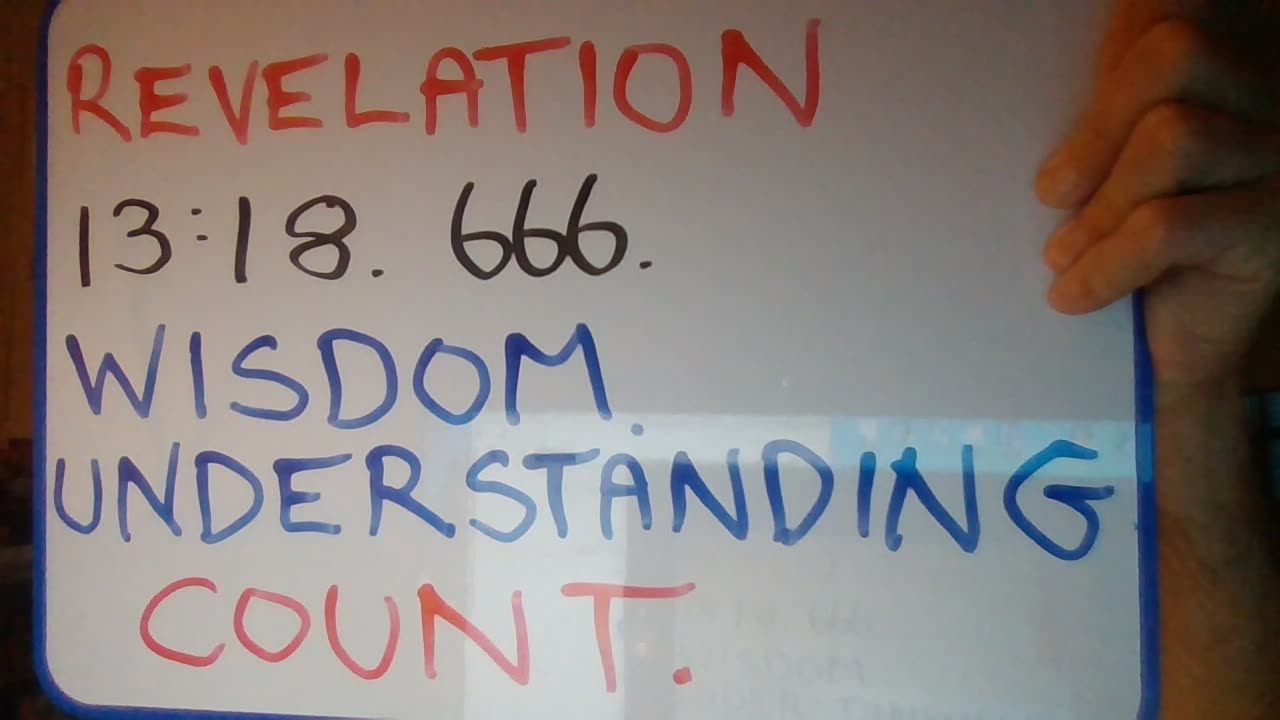 REVELATION
13:18. 666.
WISDOM.
UNDERSTANDING
COUNT.